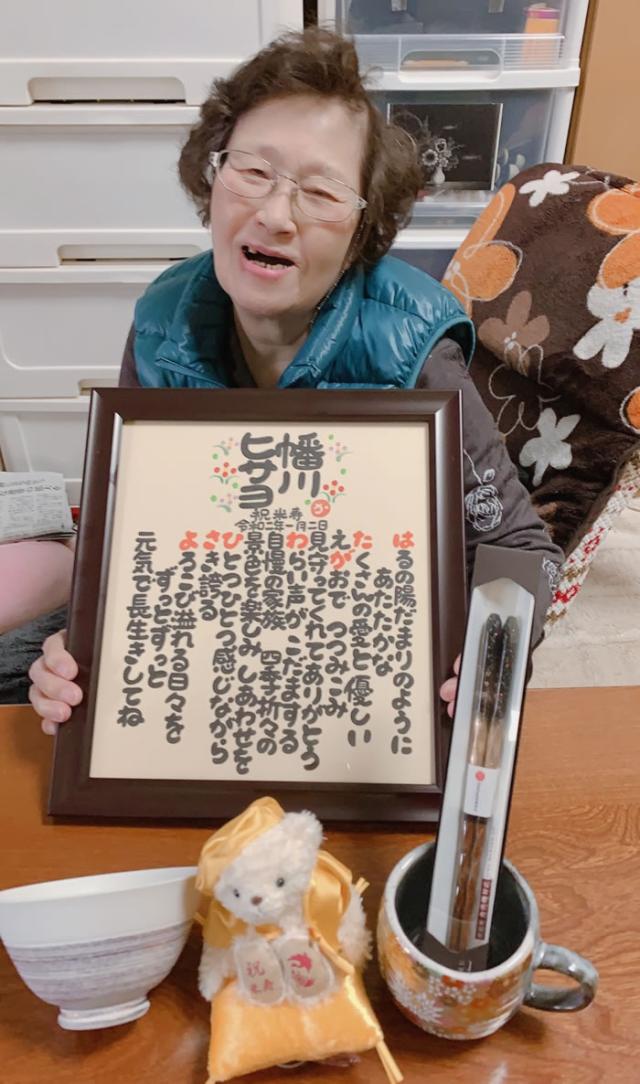 幡川
ヒサヨ
祝 米寿
令和二年一月二日
はるの陽だまりのように
あたたかな
たくさんの愛と優しい
えがおで つつみこみ
見守ってくれてありがとう
わらい声が こだまする
自慢の家族 四季折々の
景色を楽しみ しあわせを
ひとつひとつ感じながら
さき誇る
よろこび溢れる日々を
ずっとずっと
元気で長生きしてね
祝
米寿